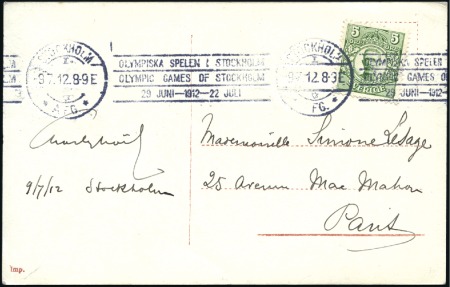 STOCKHOLM
9.7.12.8-9E
AFG.
OLYMPISKA SPELEN I STOCKHOLM
OLYMPIC GAMES OF STOCKHOLM
29 JUNI-1912-22 JULI
STOCKHOLM
9.7.12.8-9E
FG.
5 5
SVERIGE
OLYMPISKA SP
OLYMPIC GAM
29 JUNI-1912
9/7/12 Stockholm
Mademoiselle Simone Lesage
25 Avenue Mac Mahon
Paris
Imp.